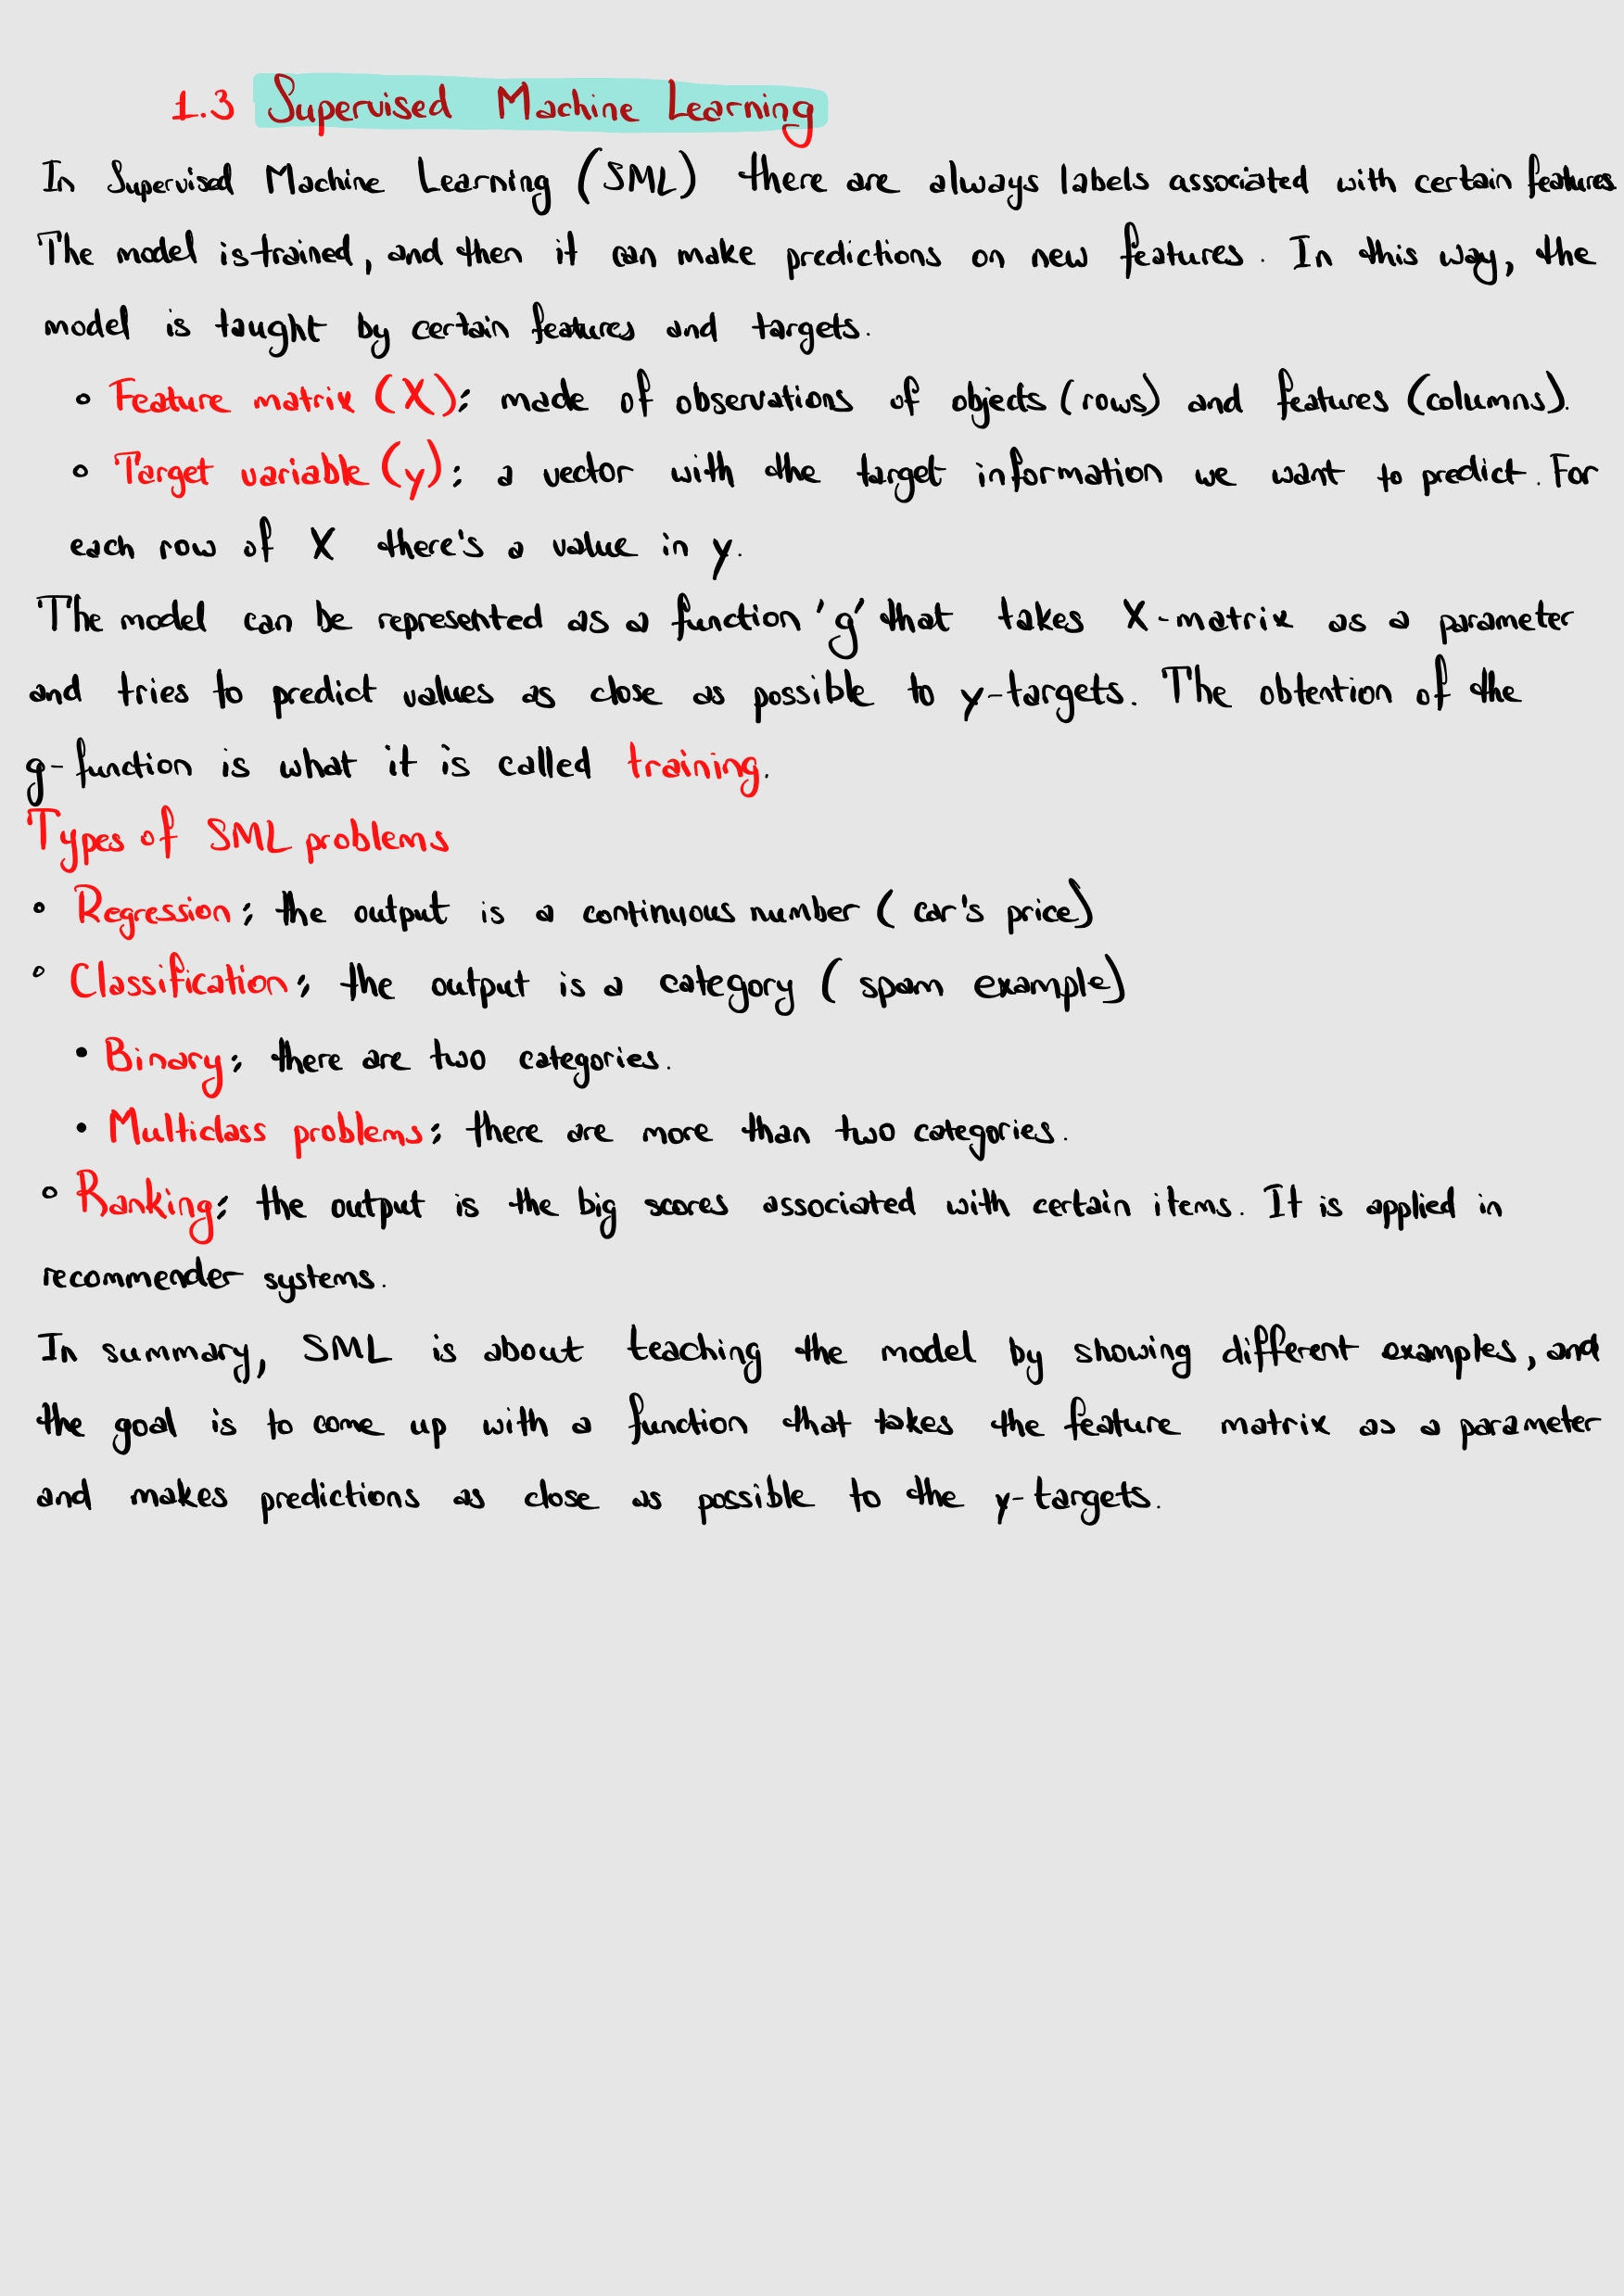 1.3 Supervised Machine Learning
In Supervised Machine Learning (SML) there are always labels associated with certain features.
The model is trained, and then it can make predictions on new features. In this way, the
model is taught by certain features and targets.
◦ Feature matrix (X): made of observations of objects (rows) and features (columns).
◦ Target variable (y): a vector with the target information we want to predict. For
each row of X there's a value in y.
The model can be represented as a function 'g' that takes X-matrix as a parameter
and tries to predict values as close as possible to y-targets. The obtention of the
g-function is what it is called training.
Types of SML problems
◦ Regression: the output is a continuous number (car's price)
◦ Classification: the output is a category (spam example)
• Binary: there are two categories.
• Multiclass problems: there are more than two categories.
◦ Ranking: the output is the big scores associated with certain items. It is applied in
recommender systems.
In summary, SML is about teaching the model by showing different examples, and
the goal is to come up with a function that takes the feature matrix as a parameter
and makes predictions as close as possible to the y-targets.